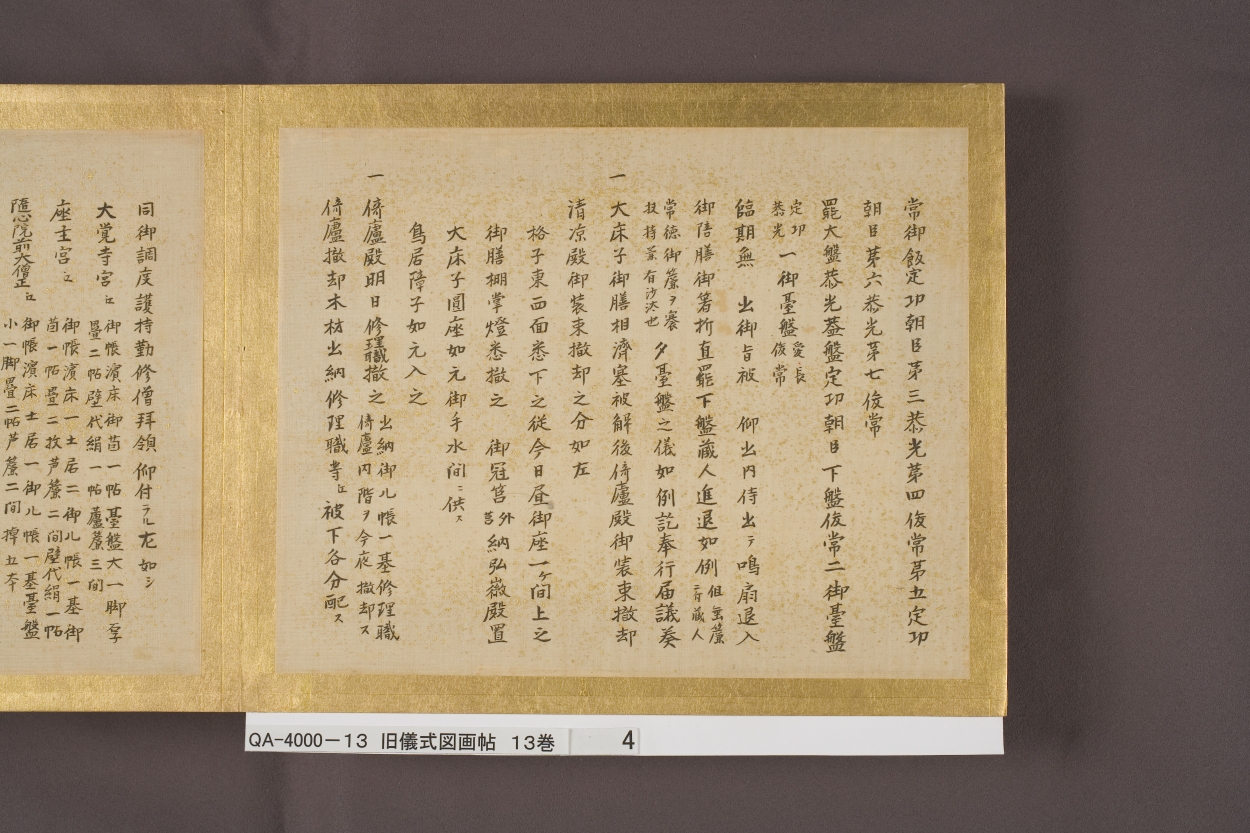 常御飯定功朝臣第三恭光第四俊常第五定功
朝臣第六恭光第七俊常
罷大盤恭光蓋盤定功朝臣下盤俊常二御臺盤
定功恭光一御臺盤愛長俊常
臨期無 出御旨被 仰出内侍出テ鳴扇退入
御陪膳御箸折直罷下盤蔵人進退如例但無簾ニ付蔵人
常徳御簾ヲ褰 扶持等有沙汰也 夕臺盤之儀如例訖奉行届議奏
一 大床子御膳相濟塞被解後倚廬殿御装束撤却
清凉殿御装束撤却之分如左
格子東西面悉下之従今日昼御座一ケ間上之
御膳棚掌燈悉撤之 御冠筥外筥納弘徽殿置
大床子圓座如元御手水間ニ供ス
鳥居障子如元入之
一 倚廬殿明日修理職撤之出納御几帳一基修理職倚廬内階ヲ今夜撤却ス
倚廬撤却木材出納修理職等江被下各分配ス
同御調度護持勤修僧拜領仰付ラル左如シ
大覚寺宮江 御帳濱床御茵一帖臺盤大一脚
畳二帖壁代絹一帖蘆簾三間
座主宮江 御帳濱床一土居二御几帳一基御
茵一帖畳二枚芦簾二間壁代絹一帖
隨心院前大僧正江 御帳濱床土居一御几帳一基臺盤
小一脚畳二帖芦簾二間 五本
QA-4000-13 旧儀式図画帖 13巻 4